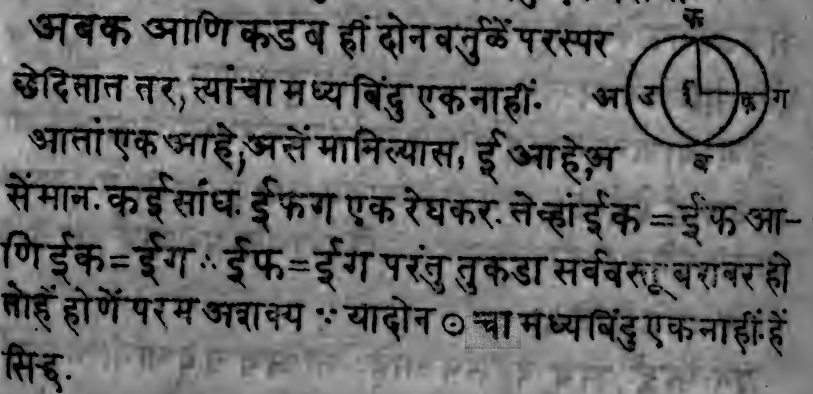 अबक आणि कडब हीं दोन वर्तुळें परस्पर
छेदितात तर, त्यांचा मध्यबिंदु एक नाहीं.
आतां एक आहे, असें मानिल्यास, ई आहे, अ
सें मान. क ई सांध. ई फ ग एक रेघ कर. तेव्हां ईक = ईफ आ-
णि ईक = ईग ∴ ईफ = ईग परंतु तुकडा सर्ववस्तू बराबर हो
तो हें होणें परम अशक्य ∵ या दोन ⊙ चा मध्यबिंदु एक नाहीं. हें
सिद्ध.
क
अ ड ई फ ग
ब